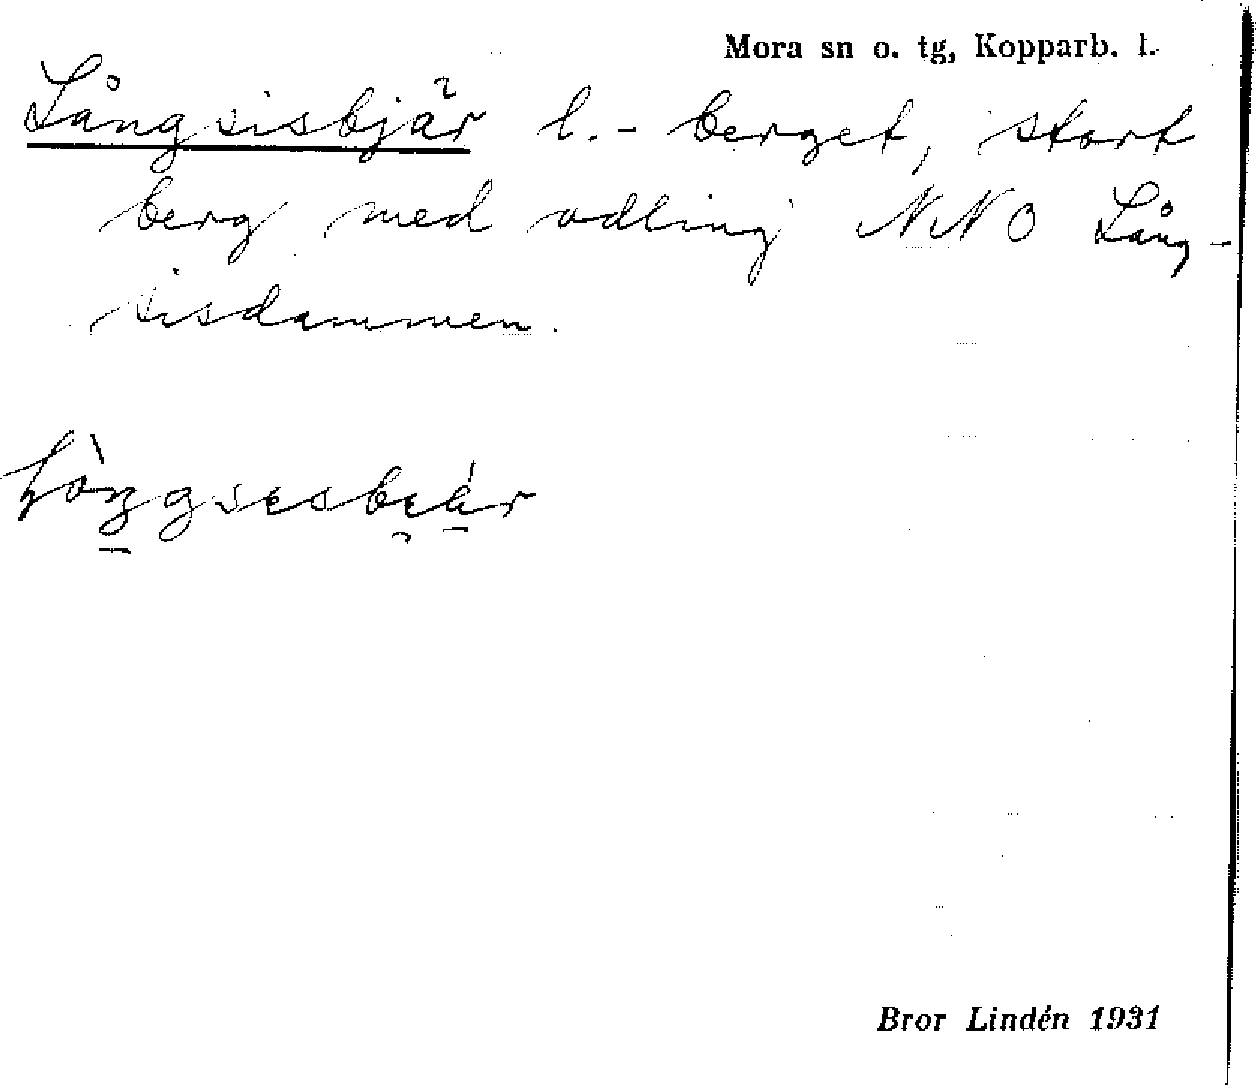 Mora sn o. tg, Kopparb. l.
Långsisbjär l. - berget, stort
berg med odling NNO Lång-
sisdammen.
Bror Lindén 1931